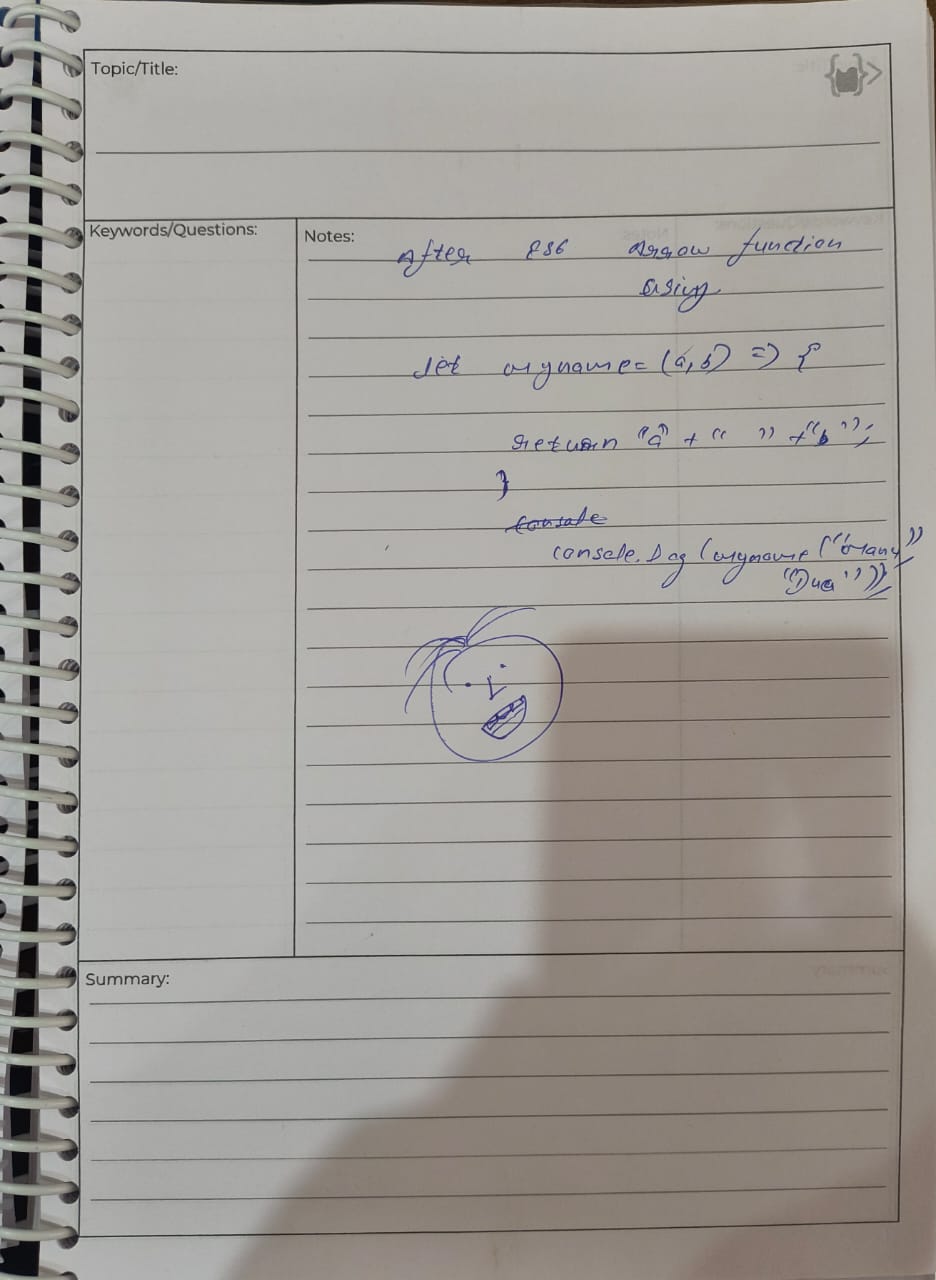 Topic/Title:
Keywords/Questions:
Notes:
After ES6 arrow function
using
let myname = (a, b) => {
return "a" + " " + "b";
}
console
console.log (myname ("
"Dua"));
Summary: